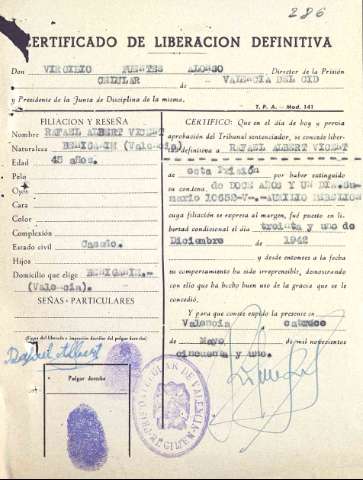 286
CERTIFICADO DE LIBERACIÓN DEFINITIVA
Don VIRGILIO FUENTES ALONSO Director de la Prisión
CELULAR de VALENCIA DEL CID
y Presidente de la Junta de Disciplina de la misma.
T. P. A. — Mod. 141
FILIACION Y RESEÑA
Nombre RAFAEL ALBERT VICENT
Naturaleza BENIGANIM (Valencia)
Edad 45 años.
Pelo
Ojos
Cara
Color
Complexión
Estado civil Casado.
Hijos
Domicilio que elige BENIGANIM.-
(Valencia).
SEÑAS PARTICULARES
(Firma del liberado e impresión dactilar del pulgar derecho)
Rafael Albert
Pulgar derecho
CERTIFICO: Que en el día de hoy y previa
aprobación del Tribunal sentenciador, se concede liber-
definitiva a RAFAEL ALBERT VICENT
de esta Prisión
por haber extinguido
su condena de DOCE AÑOS Y UN DIA.Su-
mario 10652-V-.-AUXILIO REBELION
cuya filiación se expresa al margen, fué puesto en li-
bertad condicional el día treinta y uno de
Diciembre de 1942
y desde entonces a la fecha
su comportamiento ha sido irreprensible, demostrando
con ello que ha hecho buen uso de la gracia que se
le concedió.
Y para que conste expido la presente en
Valencia catorce
de Mayo de mil novecientos
cincuenta y uno.
PRISION CELULAR DE VALENCIA